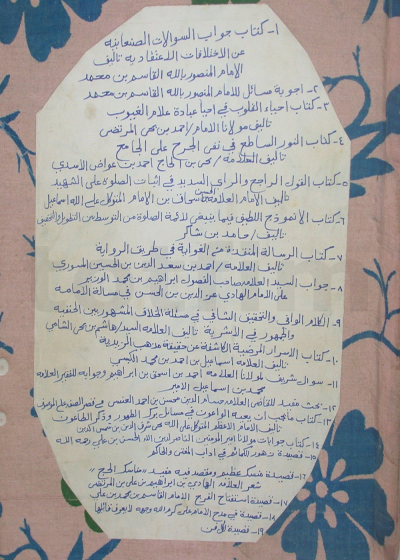 ١- كتاب جواب السوالات الصنعانيه
عن الاختلافات الاعتقاديه تاليف
الامام المنصور بالله القاسم بن محمد
٢- اجوبة مسائل للامام المنصور بالله القاسم بن محمد
٣- كتاب احياء القلوب في احيا عبادة علام الغيوب
تاليف مولانا الامام/احمد بن يحيى المرتضى
٤- كتاب النور الساطع في نفي الجرح على الجامع
تاليف العلامه/يحيى بن الحاج احمد بن عواض الاسدي
٥- كتاب القول الراجح والراي السديد في اثبات الصلوة على الشهيد
تاليف الامام العلامه بن الامام المتوكل على الله اسماعيل
٦- كتاب الانموذج اللطيف فيما ينبغي لائمة الصلوة من التوسط بين التطويل والتخفيف
تاليف/حامد بن شاكر
٧- كتاب الرسالة المنقذة من الغواية في طريق الرواية
تاليف العلامه/احمد بن سعد الدين بن الحسين المسوري
٨- جواب السيد العلامه صاحب الفصول ابراهيم بن محمد الوزير
على الامام الهادي عز الدين بن الحسن في مسالة الامامه
٩- الكلام الوافي والتحقيق الشافي في مسالة الخلاف المشهور بين الحنفيه
والجمهور في الاشربة تاليف العلامه السيد/هاشم بن يحيى الشامي
١٠- كتاب الاسرار المرضية الكاشفة عن حقيقة مذهب الزيدية
تاليف العلامة اسماعيل بن احمد بن محمد الكبسي
١١- سوال شريف لمولانا العلامه احمد بن اسحق بن ابراهيم وجوابه للفقير العلامه
محمد بن اسماعيل الامير
١٢- بحث مفيد للقاضي العلامه حسام الدين محسن بن احمد العنسي في قصر الصفه على الموصوف
١٣- كتاب ما يجب ان يعيه الواعون في مسائل يركد الظهور وذكر الطاعون
تاليف الامام الاعظم المتوكل على الله يحيى شرف الدين بن شمس الدين
١٤- كتاب جوابات مولانا امير المومنين الناصر لدين الله الحسن بن علي رحمه الله
١٥- قصيدة زهور الكمائم في اداب المفتي والحاكم
١٦- قصيدة منسك عظيم ومقصد فيه مفيد مناسك الحج
شعر العلامه الهادي بن ابراهيم بن علي بن المرتضى
١٧- قصيدة استفتاح الفرج الامام القاسم بن محمد بن علي
١٨- قصيدة في مدح الامام علي كرم الله وجهه لا يعرف قائلها
١٩- قصيدة